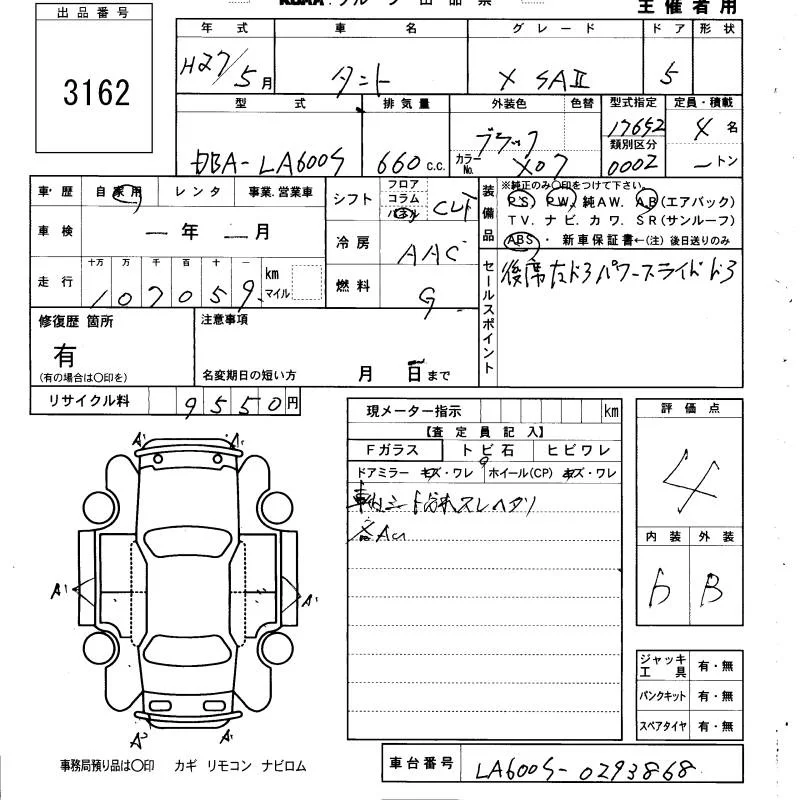 主催者用
出品番号
3162
年式 車名 グレード ドア 形状
H27/5月 タント X SAⅡ 5
型式 排気量 外装色 色替 型式指定 定員・積載
DBA-LA600S 660c.c. ブラック 17652 4名
カラーNo. X07 類別区分 0002 トン
車・歴 自家用 レンタ 事業.営業車
車検 年 月
走行 十万 万 千 百 十 一 km マイル
107059
シフト フロア コラム パネル CVT
冷房 AAC
燃料 G
装備品
※純正のみ〇印をつけて下さい。
PS. PW. 純AW. AB(エアバック)
TV. ナビ. カワ. SR(サンルーフ)
ABS・新車保証書←(注)後日送りのみ
セールスポイント
後席左ドアパワースライドドア
修復歴 箇所
有
(有の場合は〇印を)
注意事項
名変期日の短い方 月 日まで
リサイクル料 9550円
現メーター指示 km
【査定員記入】
Fガラス トビ石 ヒビワレ
ドアミラー キズ・ワレ ホイール(CP) キズ・ワレ
車内シート スレヘタリ
評価点
4
内装 外装
b B
A1 A1
A1 A1
A2 A1
ジャッキ工具 有・無
パンクキット 有・無
スペアタイヤ 有・無
事務局預り品は〇印 カギ リモコン ナビロム
車台番号 LA600S-0293868